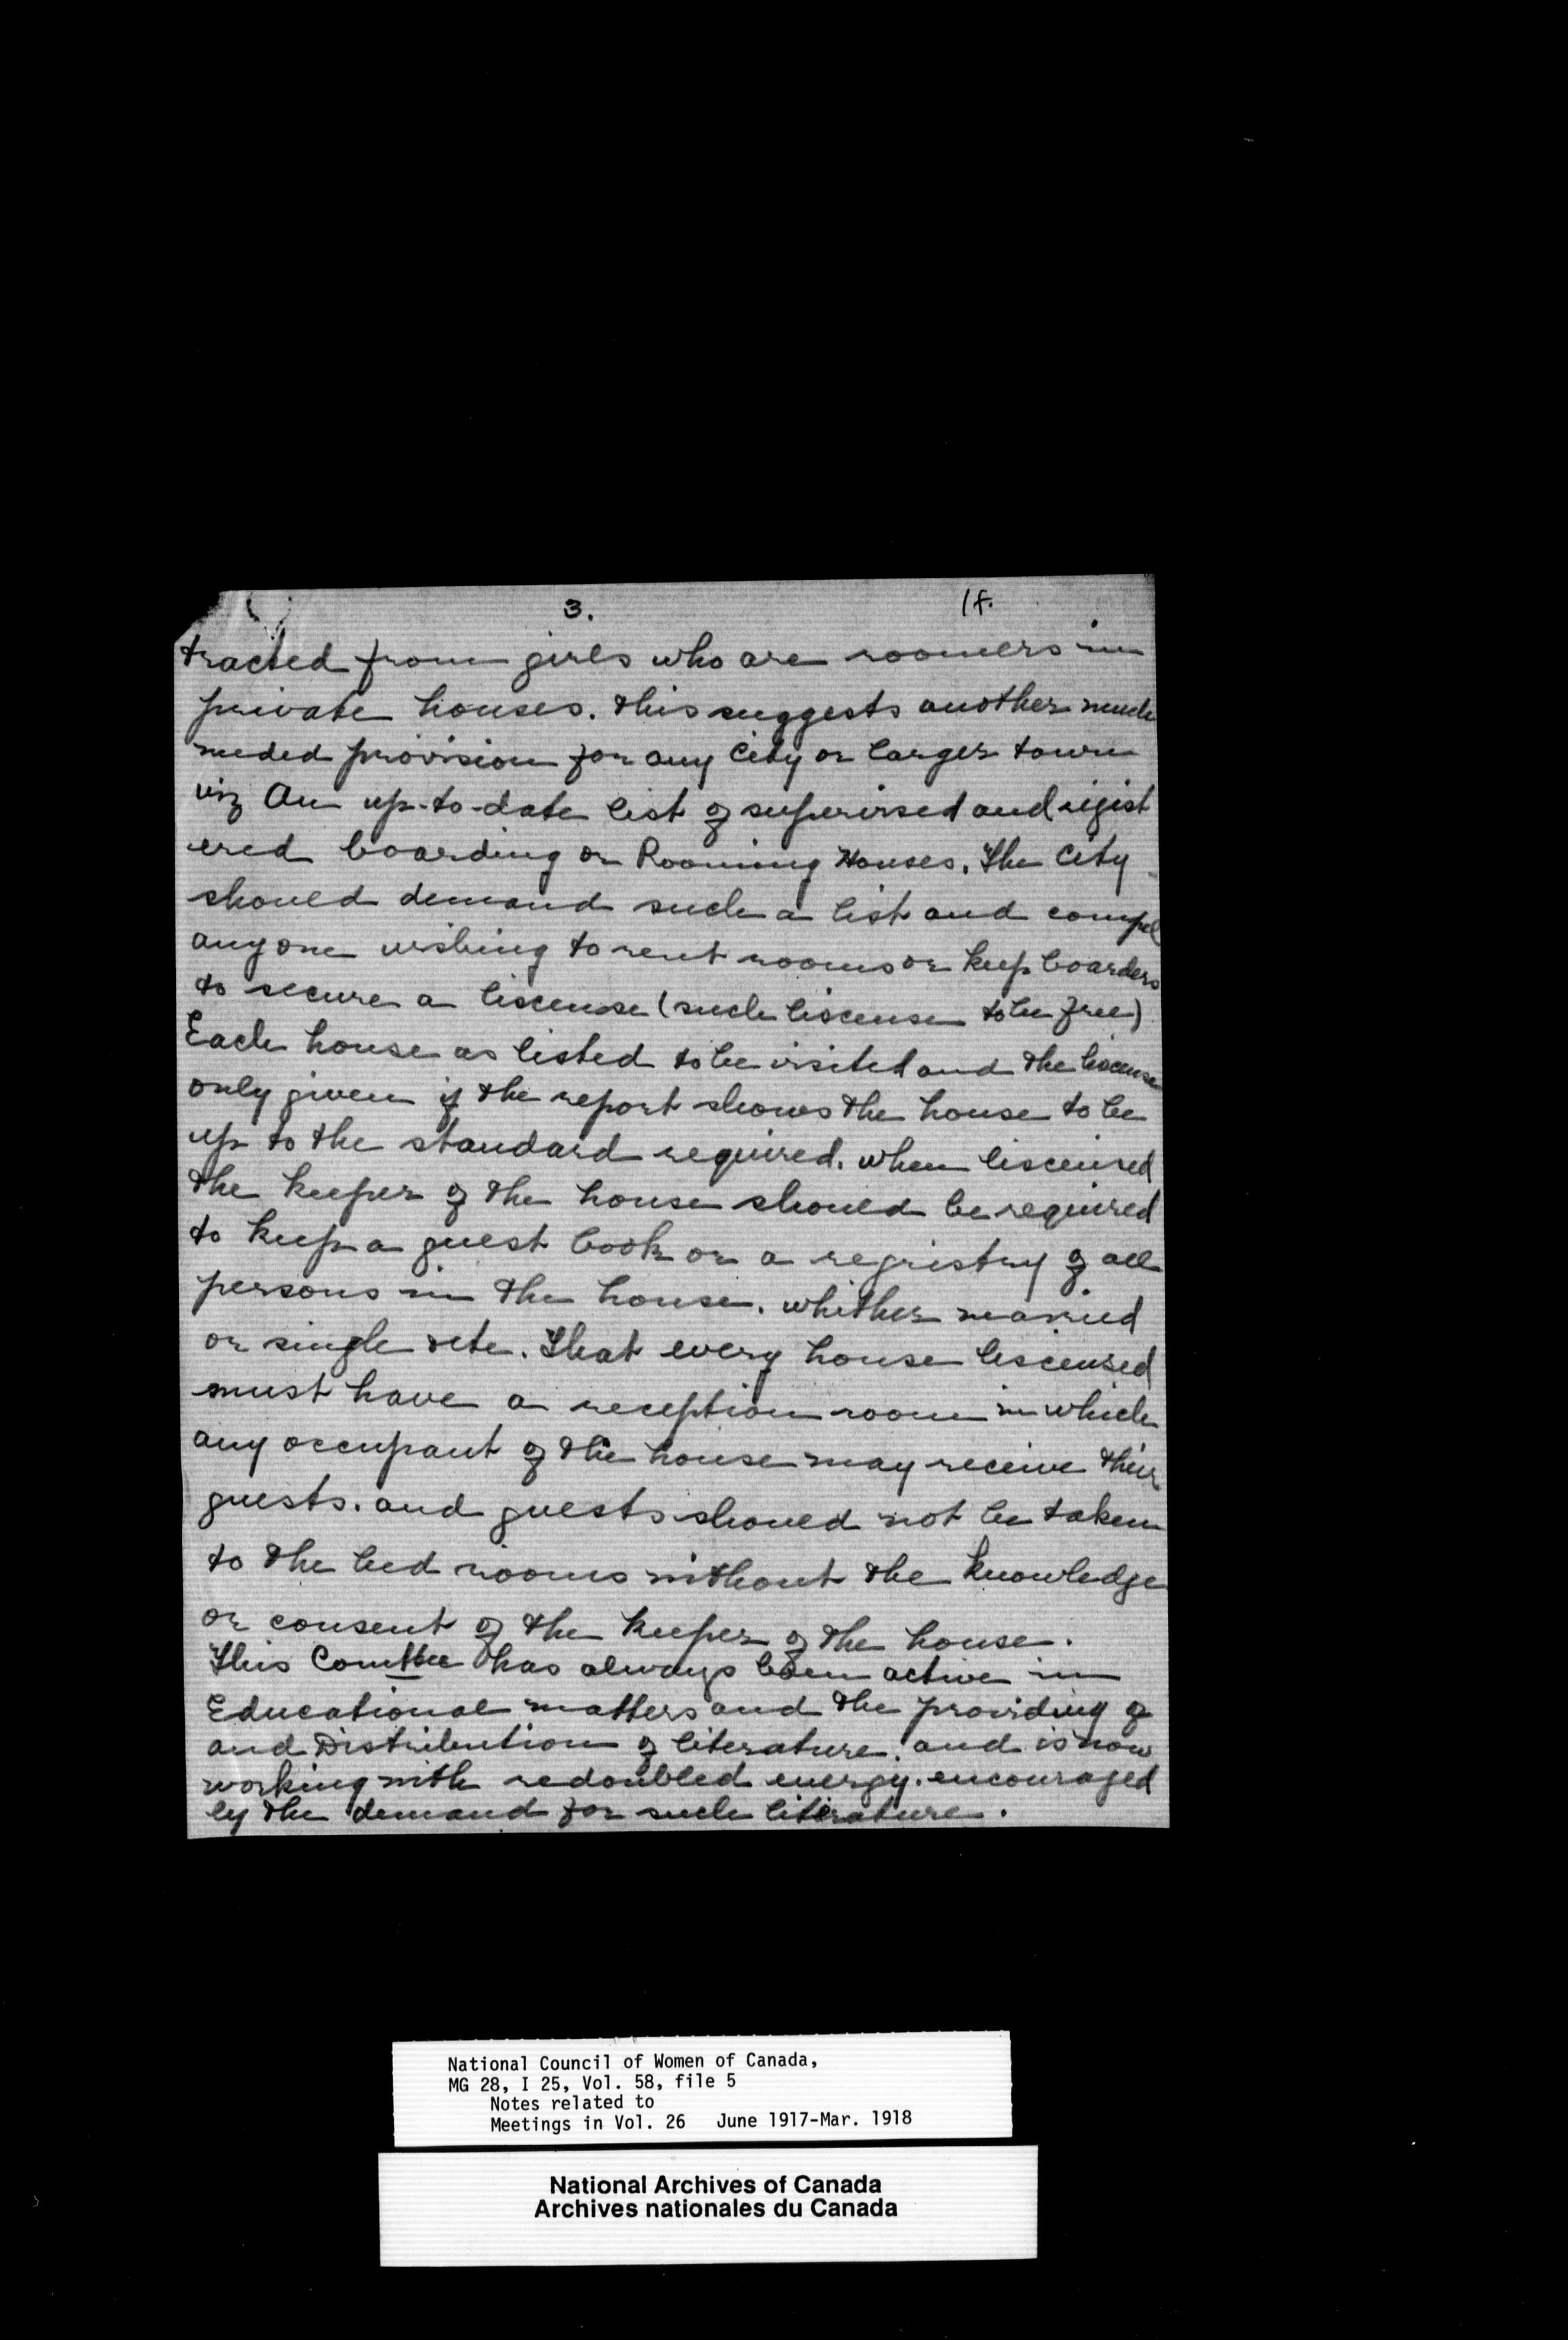 3. 1f.
tracted from girls who are roomers in
private houses. This suggests another much
needed provision for any City or larger town
viz An up-to-date list of supervised and regist
ered boarding or Rooming Houses. The City
should demand such a list and compel
anyone wishing to rent rooms or keep boarders
to secure a liscense (such liscense to be free)
Each house as listed to be visited and the liscense
only given if the report shows the house to be
up to the standard required. when liscensed
the keeper of the house should be required
to keep a guest book or a registry of all
persons in the house. whether married
or single etc. That every house liscensed
must have a reception room in which
any occupant of the house may receive their
guests. and guests should not be taken
to the bed rooms without the knowledge
or consent of the keeper of the house.
This Comttee has always been active in
Educational matters and the providing of
and Distribution of literature. and is now
working with redoubled energy. encouraged
by the demand for such literature.
National Council of Women of Canada,
MG 28, I 25, Vol. 58, file 5
Notes related to
Meetings in Vol. 26 June 1917-Mar. 1918
National Archives of Canada
Archives nationales du Canada